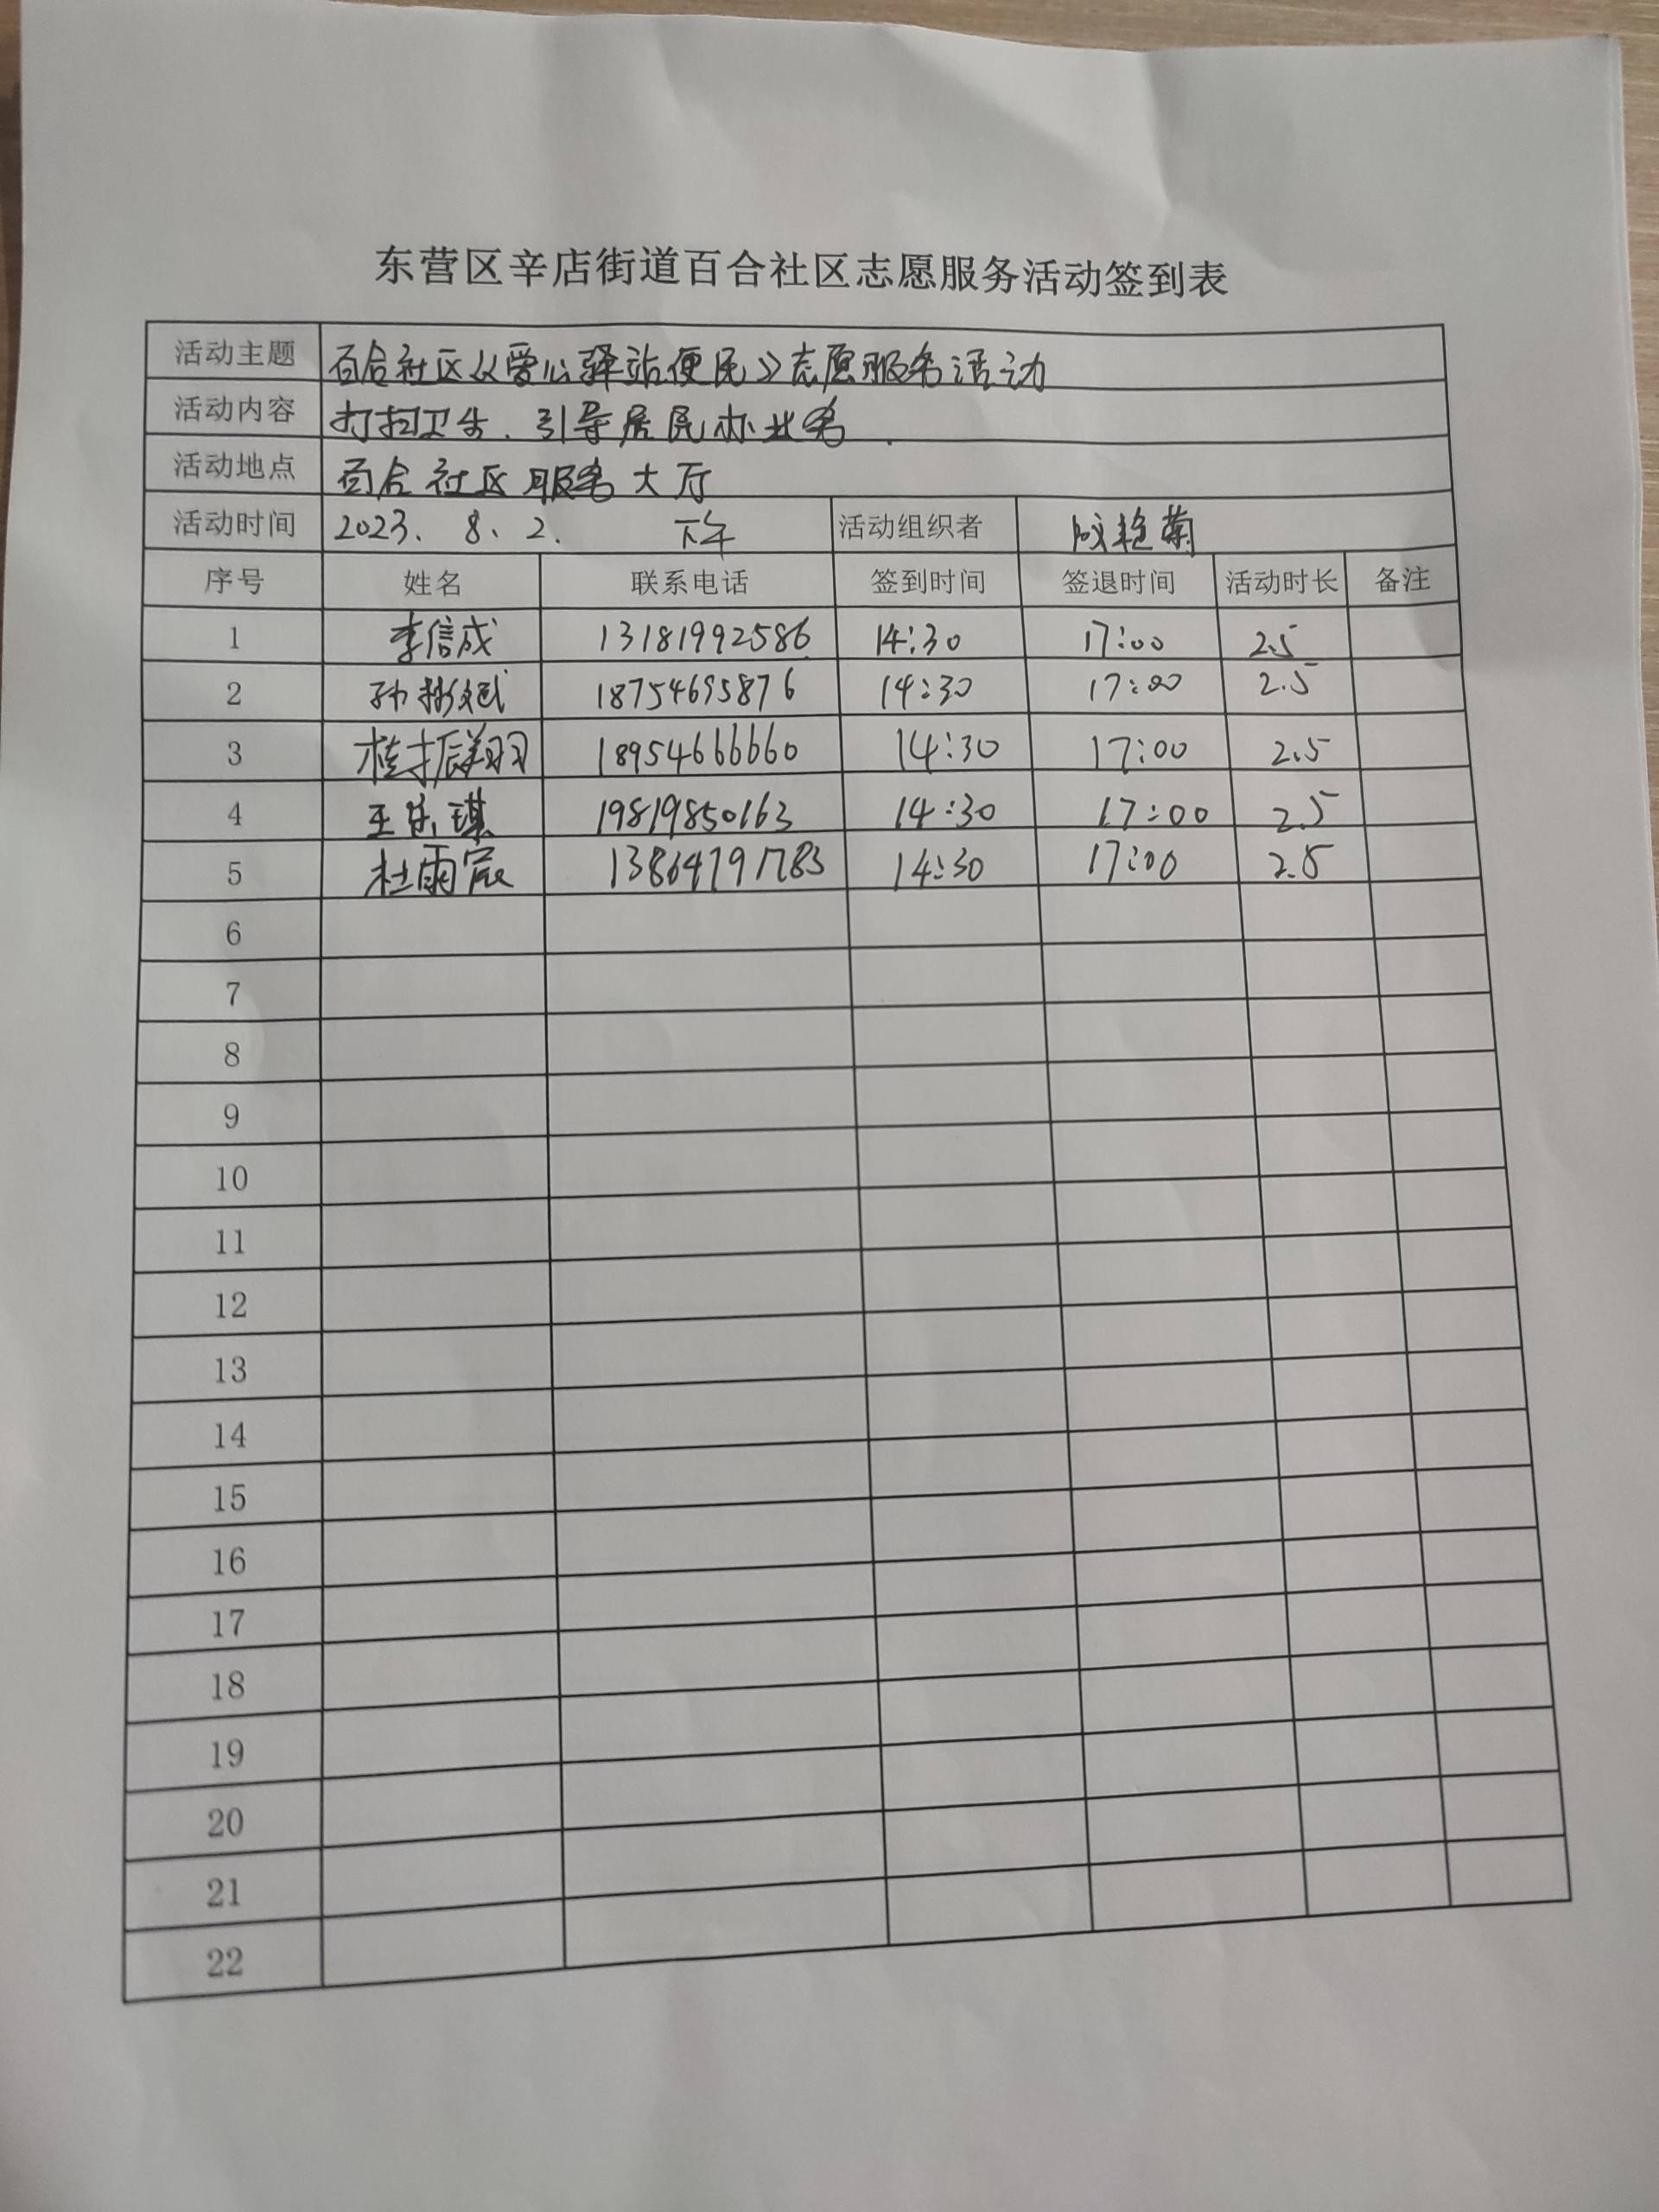 东营区辛店街道百合社区志愿服务活动签到表
活动主题 百合社区《爱心驿站便民》志愿服务活动
活动内容 打扫卫生、引导居民办业务.
活动地点 百合社区服务大厅
活动时间 2023. 8. 2. 下午 活动组织者 艳菊
序号 姓名 联系电话 签到时间 签退时间 活动时长 备注
1 李信成 13181992586 14:30 17:00 2.5
2 孙 18754695876 14:30 17:00 2.5
3 桂振翔 18954666660 14:30 17:00 2.5
4 王乐琪 19819850163 14:30 17:00 2.5
5 杜雨宸 13864791783 14:30 17:00 2.5
6
7
8
9
10
11
12
13
14
15
16
17
18
19
20
21
22